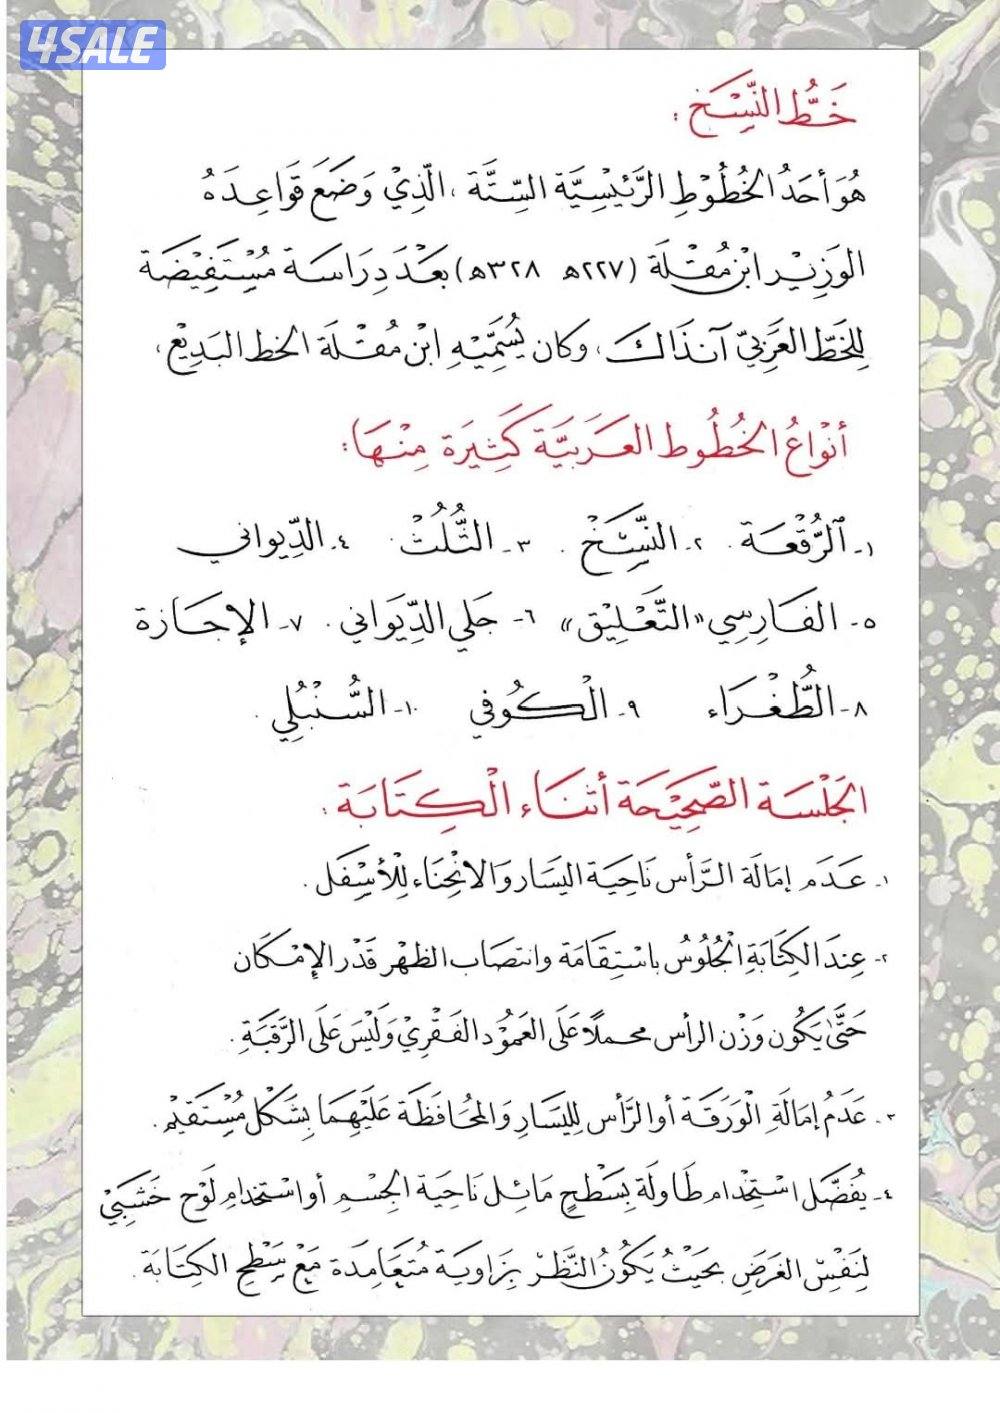 4SALE
خَطُّ النَّسْخ :
هُوَ أَحَدُ الخُطُوْطِ الرَّئِيْسِيَّة السِّتَّة ، الَّذِيْ وَضَعَ قَوَاعِدَهُ
الوَزِيْر ابْن مُقْلَة (٢٢٧هـ ٣٢٨هـ) بَعْدَ دِرَاسَة مُسْتَفِيْضَة
لِلخَطّ العَرَبيّ آنَذَاك ، وَكان يُسَمِّيْهِ ابْن مُقْلَة الخط البَدِيْع ،
أنْوَاعُ الخُطُوط العَرَبيَّة كَثِيرَة مِنْهَا :
١- الرُّقْعَة . ٢- النَّسْخْ . ٣- الثُّلُثْ . ٤- الدِّيواني
٥- الفَارِسِي «التَّعْلِيْق» ٦- جَلي الدِّيْوَاني . ٧- الإجَازة
٨- الطُّغْرَاء ٩- الْكُوفي ١٠- السُّنْبُلِي .
الجَلْسَة الصَّحِيْحَة أثنَاء الْكِتَابَة :
١- عَدَم إمَالَة الرَّأس نَاحِيَة اليَسَار وَالانْحِنَاء لِلْأسْفَل .
٢- عِندَ الكِتَابَةِ الْجُلُوسُ بِاسْتِقَامَة وانتصَاب الظهْر قَدْر الإمْكَان
حَتَّى يَكُون وَزْن الرأس محملًا عَلَى العَمُوْد الفَقْرِيْ وَلَيْسَ عَلَى الرَّقَبَةِ .
٣- عَدَمُ إمَالَةِ الْوَرَقَة أو الرَّأس لِليَسَارِ وَالمحَافَظَة عَلَيْهِمَا بِشَكْل مُسْتَقِيْم .
٤- يُفَضَّل اسْتِخْدَام طَاولَة بِسَطْحٍ مَائِل نَاحِيَة الجِسْمِ أو اسْتخْدَامِ لَوْح خَشَبِيْ
لِنَفْسِ الغَرَضِ بحَيْثُ يَكُوْنُ النَّظَرْ بِزَاوِيَة مُتَعَامِدَة مَعْ سَطْحِ الكِتَابَة .